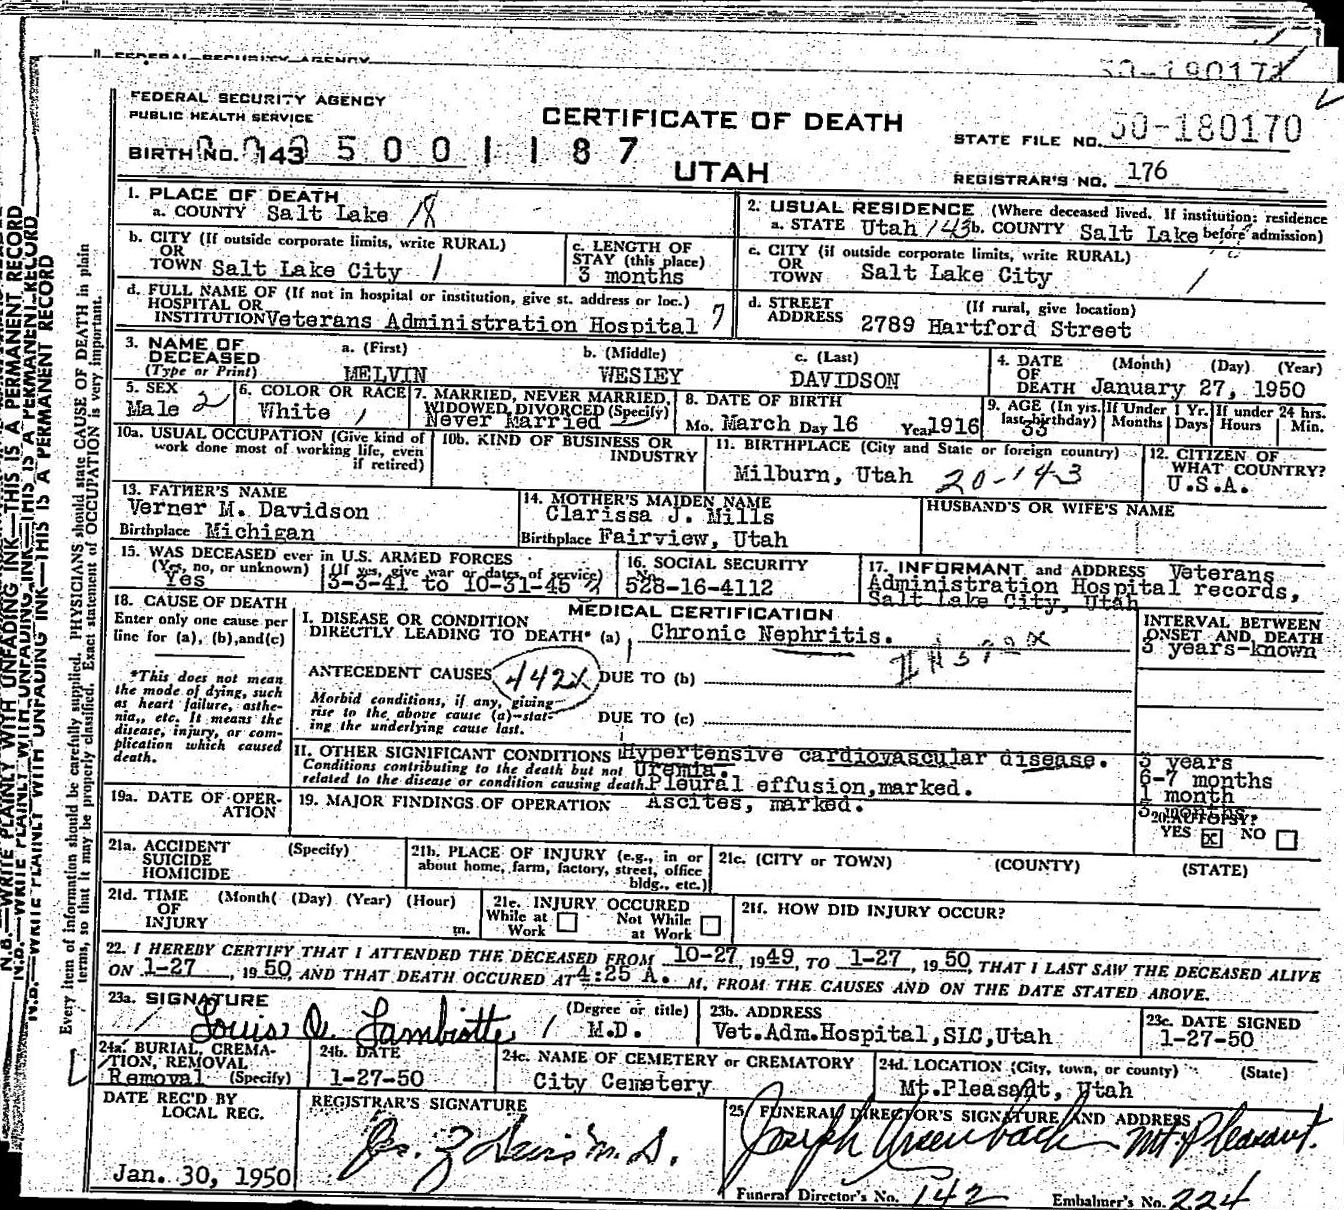 FEDERAL SECURITY AGENCY
50-180171
FEDERAL SECURITY AGENCY
PUBLIC HEALTH SERVICE
CERTIFICATE OF DEATH
UTAH
STATE FILE NO. 50-180170
BIRTH NO. 143 5001187
REGISTRAR'S NO. 176
N.B.—WRITE PLAINLY WITH UNFADING INK—THIS IS A PERMANENT RECORD
Every item of information should be carefully supplied. PHYSICIANS should state CAUSE OF DEATH in plain
terms, so that it may be properly classified. Exact statement of OCCUPATION is very important.
1. PLACE OF DEATH
a. COUNTY Salt Lake 18
2. USUAL RESIDENCE (Where deceased lived. If institution: residence
a. STATE Utah 143 b. COUNTY Salt Lake before admission)
b. CITY (If outside corporate limits, write RURAL)
OR
TOWN Salt Lake City 1
c. LENGTH OF
STAY (this place)
3 months
c. CITY (if outside corporate limits, write RURAL)
OR
TOWN Salt Lake City 1
d. FULL NAME OF (If not in hospital or institution, give st. address or loc.)
HOSPITAL OR
INSTITUTION Veterans Administration Hospital 7
d. STREET (If rural, give location)
ADDRESS 2789 Hartford Street
3. NAME OF
DECEASED
(Type or Print)
a. (First) b. (Middle) c. (Last)
MELVIN WESLEY DAVIDSON
4. DATE (Month) (Day) (Year)
OF
DEATH January 27, 1950
5. SEX
Male 2
6. COLOR OR RACE
White 1
7. MARRIED, NEVER MARRIED,
WIDOWED, DIVORCED (Specify)
Never Married
8. DATE OF BIRTH
Mo. March Day 16 Year 1916
9. AGE (In yrs. last birthday)
33
If Under 1 Yr.
Months Days
If under 24 hrs.
Hours Min.
10a. USUAL OCCUPATION (Give kind of
work done most of working life, even
if retired)
10b. KIND OF BUSINESS OR
INDUSTRY
11. BIRTHPLACE (City and State or foreign country)
Milburn, Utah 20-143
12. CITIZEN OF
WHAT COUNTRY?
U.S.A.
13. FATHER'S NAME
Verner M. Davidson
Birthplace Michigan
14. MOTHER'S MAIDEN NAME
Clarissa J. Mills
Birthplace Fairview, Utah
HUSBAND'S OR WIFE'S NAME
15. WAS DECEASED ever in U.S. ARMED FORCES
(Yes, no, or unknown) (If yes, give war or dates of service)
Yes 3-3-41 to 10-31-45 2
16. SOCIAL SECURITY
528-16-4112
17. INFORMANT and ADDRESS Veterans
Administration Hospital records,
Salt Lake City, Utah
18. CAUSE OF DEATH
Enter only one cause per
line for (a), (b), and (c)
*This does not mean
the mode of dying, such
as heart failure, asthe-
nia, etc. It means the
disease, injury, or com-
plication which caused
death.
MEDICAL CERTIFICATION
I. DISEASE OR CONDITION
DIRECTLY LEADING TO DEATH* (a) Chronic Nephritis.
ANTECEDENT CAUSES 442X DUE TO (b)
Morbid conditions, if any, giving
rise to the above cause (a)-stat-
ing the underlying cause last.
DUE TO (c)
INTERVAL BETWEEN
ONSET AND DEATH
3 years-known
II. OTHER SIGNIFICANT CONDITIONS Hypertensive cardiovascular disease.
Conditions contributing to the death but not Uremia.
related to the disease or condition causing death. Pleural effusion, marked.
Ascites, marked.
3 years
6-7 months
1 month
3 months.
19a. DATE OF OPER-
ATION
19. MAJOR FINDINGS OF OPERATION
20. AUTOPSY?
YES X NO
21a. ACCIDENT (Specify)
SUICIDE
HOMICIDE
21b. PLACE OF INJURY (e.g., in or
about home, farm, factory, street, office
bldg., etc.)
21c. (CITY or TOWN) (COUNTY) (STATE)
21d. TIME (Month( (Day) (Year) (Hour)
OF
INJURY m.
21e. INJURY OCCURED
While at Work Not While at Work
21f. HOW DID INJURY OCCUR?
22. I HEREBY CERTIFY THAT I ATTENDED THE DECEASED FROM 10-27, 1949, TO 1-27, 1950, THAT I LAST SAW THE DECEASED ALIVE
ON 1-27, 1950, AND THAT DEATH OCCURED AT 4:25 A. M, FROM THE CAUSES AND ON THE DATE STATED ABOVE.
23a. SIGNATURE (Degree or title)
Louise A. Lambiotte M.D.
23b. ADDRESS
Vet.Adm.Hospital,SLC,Utah
23c. DATE SIGNED
1-27-50
24a. BURIAL, CREMA-
TION, REMOVAL
Removal (Specify)
24b. DATE
1-27-50
24c. NAME OF CEMETERY or CREMATORY
City Cemetery
24d. LOCATION (City, town, or county) (State)
Mt.Pleasant, Utah
DATE REC'D BY
LOCAL REG.
Jan. 30, 1950
REGISTRAR'S SIGNATURE
25. FUNERAL DIRECTOR'S SIGNATURE AND ADDRESS
Joseph Ursenbach Mt. Pleasant.
Funeral Director's No. 142 Embalmer's No. 224